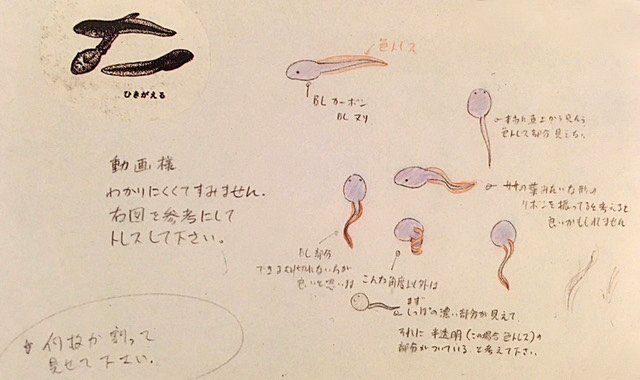 ひきがえる
色トレス
BLカーボン
BLヌリ
まれに真上から見ると
色トレス部分見えない
動画様
わかりにくくてすみません.
右図を参考にして
トレスして下さい。
ササの葉みたいな形の
リボンを振ってると考えると
良いかもしれません
BL部分
できるだけ切れない方が
良いと思います
こんな角度以外は
まず
しっぽの濃い部分が見えて、
それに半透明(この場合色トレス)の
部分がついていると考えて下さい.
何枚か割って
見せて下さい.